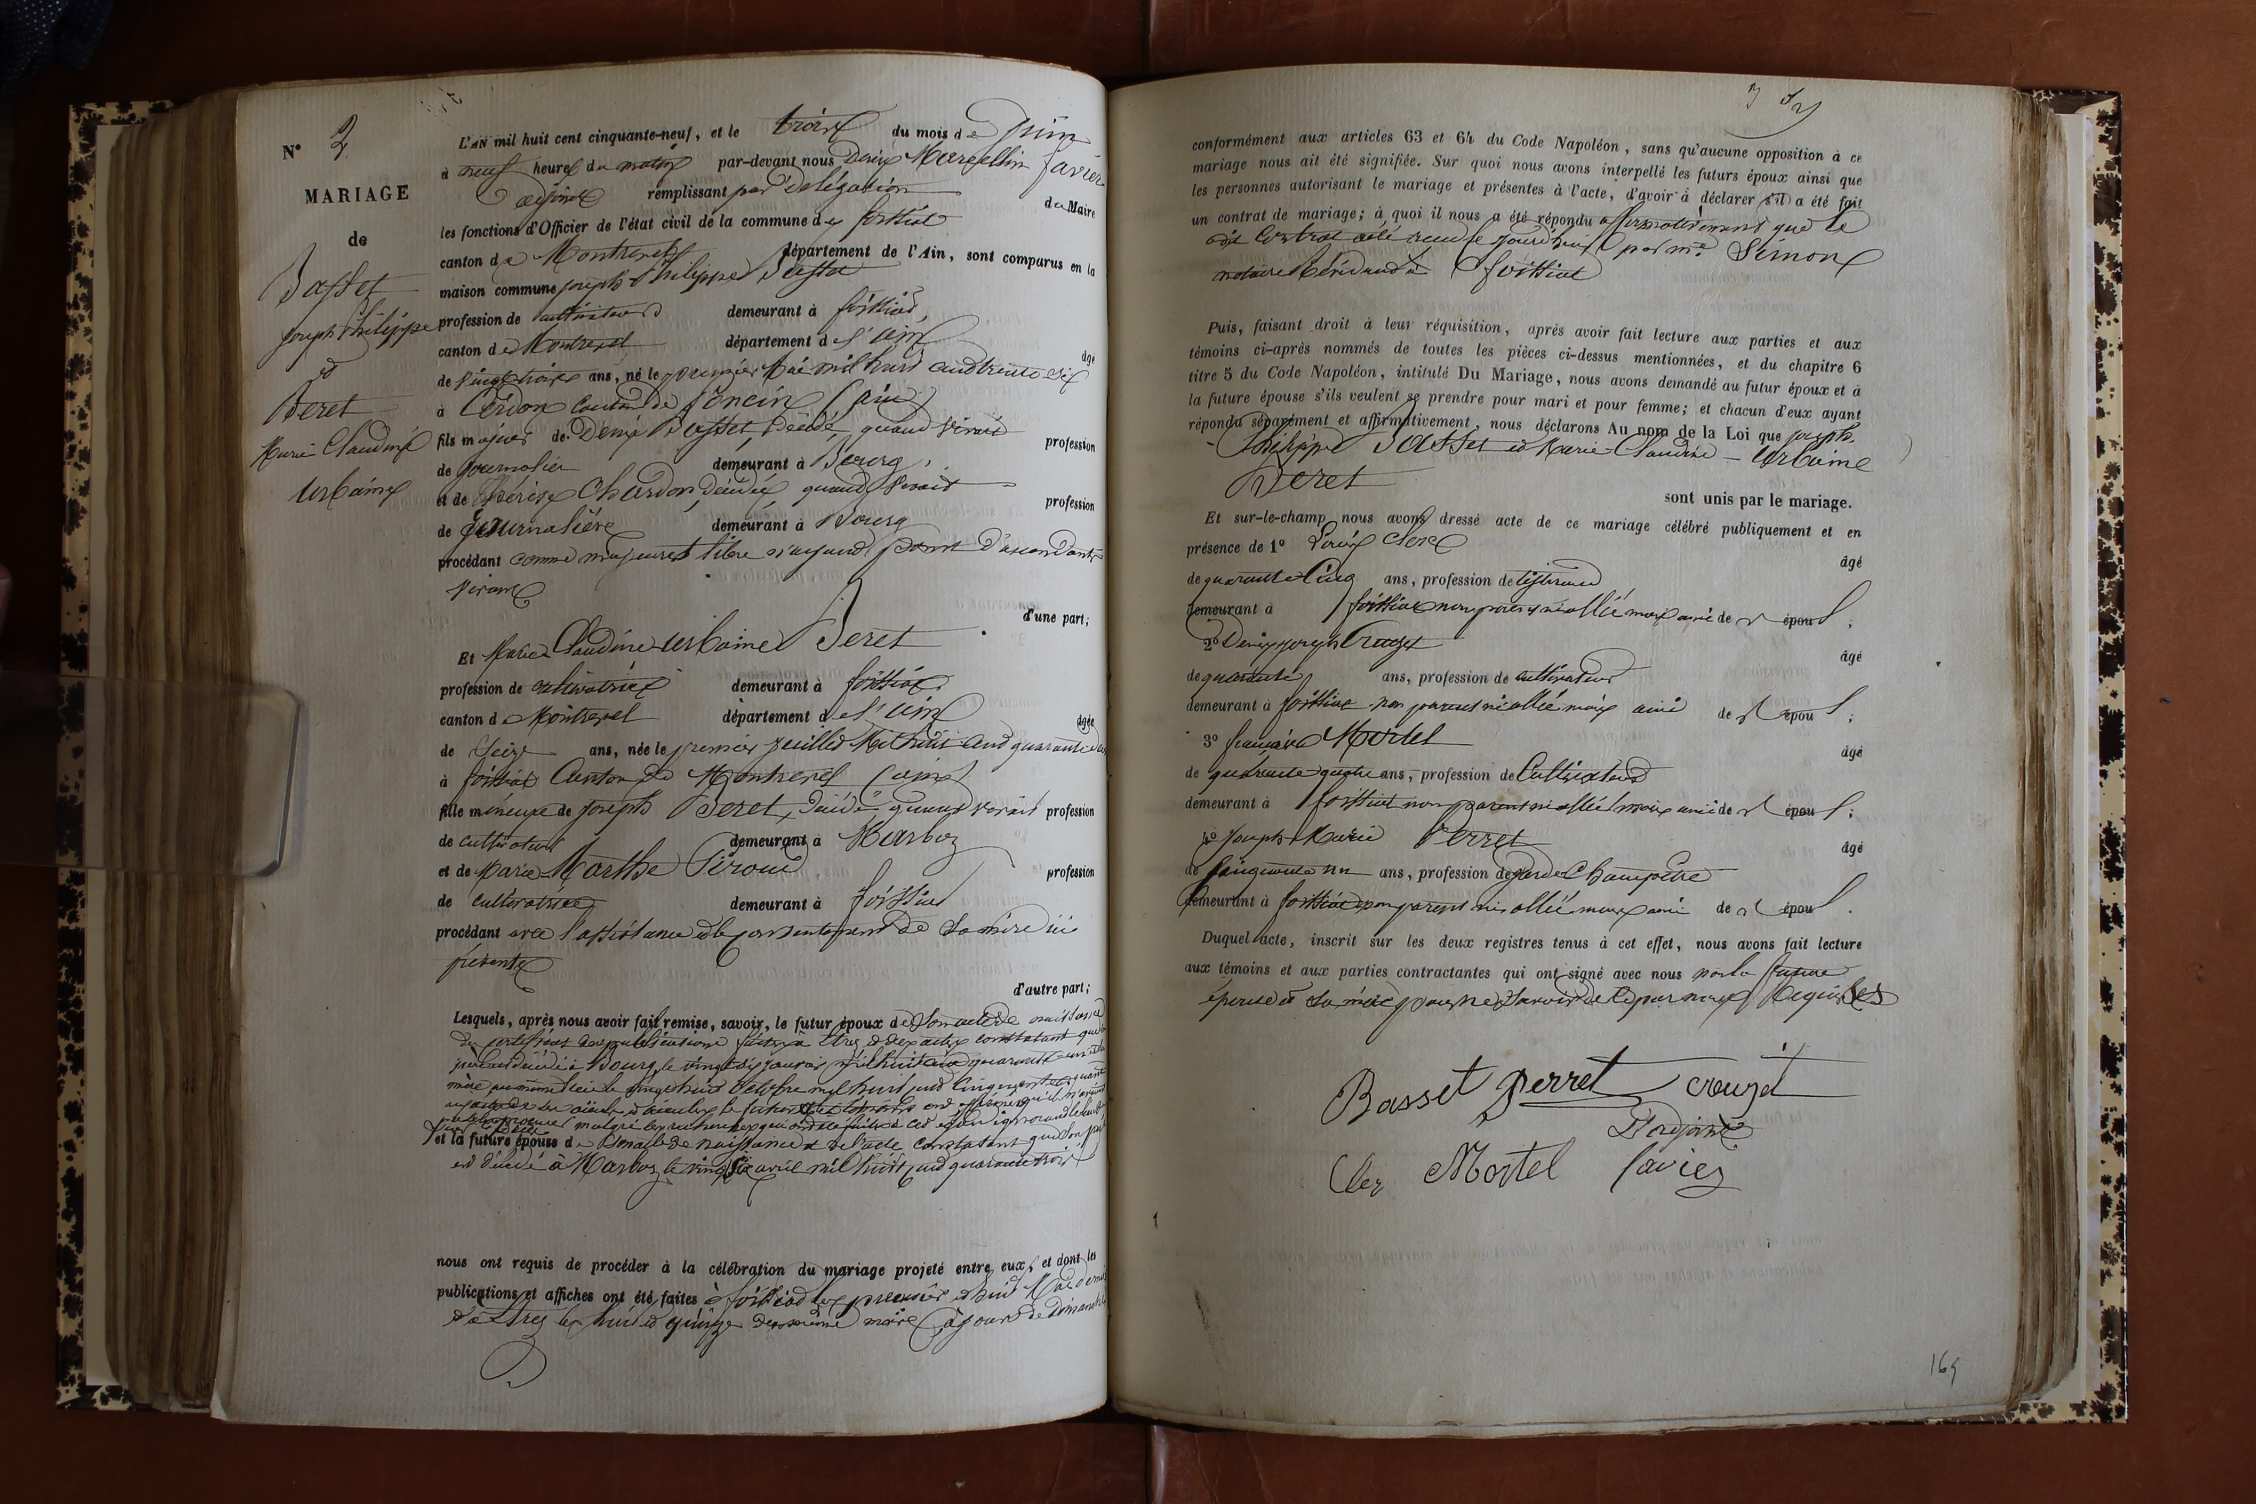 N° 2
MARIAGE
de
Basset
Joseph Philippe
et
Beret
Marie Claudine
Urbaine
L'AN mil huit cent cinquante-neuf, et le trois du mois de Juin
à neuf heures du matin par-devant nous Denis Marcellin favier
adjoint remplissant par délégation du Maire
les fonctions d'Officier de l'état civil de la commune de foissiat
canton de Montrevel département de l'Ain, sont comparus en la
maison commune joseph Philippe Basset
profession de cultivateur demeurant à foissiat,
canton de Montrevel département de l'ain
âgé
de vingt trois ans, né le premier Mai mil huit cent trente six
à Cerdon Canton de Poncin (ain)
fils majeur de Denis Basset, Décédé, quand vivait profession
de journalier demeurant à Bourg,
et de Thérèse Chardon, décédée, quand vivait profession
de journalière demeurant à Bourg
procédant comme majeur et libre n'ayant point d'ascendants
vivants
d'une part;
Et Marie Claudine Urbaine Beret
profession de cultivatrice demeurant à foissiat
canton de Montrevel département de l'ain
âgée
de Seize ans, née le premier juillet Mil huit cent quarante deux
à foissiat Canton de Montrevel (ain)
fille mineure de joseph Beret, Décédé quand vivait profession
de cultivateur demeurant à Marboz
et de Marie Marthe Piroud profession
de cultivatrice demeurant à foissiat
procédant avec l'assistance et le consentement de sa mère ici
présente
d'autre part;
Lesquels, après nous avoir fait remise, savoir, le futur époux de son acte de naissance
du certificat des publications faites à Etrez et des actes constatant que son
père est décédé à Bourg le vingt dix janvier mil huit cent quarante un et sa
mère au même lieu le vingt huit octobre mil huit cent cinquante
malgré les recherches qui ont été faites à cet égard
et la future épouse de son acte de naissance et de l'acte constatant que son père
est décédé à Marboz le vingt six avril mil huit cent quarante trois
nous ont requis de procéder à la célébration du mariage projeté entre eux, et dont les
publications et affiches ont été faites à foissiat les premier et huit Mai dernier
et à Etrez les huit et quinze du même mois à jours de dimanche
conformément aux articles 63 et 64 du Code Napoléon, sans qu'aucune opposition à ce
mariage nous ait été signifiée. Sur quoi nous avons interpellé les futurs époux ainsi que
les personnes autorisant le mariage et présentes à l'acte, d'avoir à déclarer s'il a été fait
un contrat de mariage; à quoi il nous a été répondu affirmativement que le
dit Contrat a été reçu le jourd'hui par me Simon
notaire Résidant à foissiat
Puis, faisant droit à leur réquisition, après avoir fait lecture aux parties et aux
témoins ci-après nommés de toutes les pièces ci-dessus mentionnées, et du chapitre 6
titre 5 du Code Napoléon, intitulé Du Mariage, nous avons demandé au futur époux et à
la future épouse s'ils veulent se prendre pour mari et pour femme; et chacun d'eux ayant
répondu séparément et affirmativement, nous déclarons Au nom de la Loi que joseph
Philippe Basset et Marie Claudine Urbaine
Beret
sont unis par le mariage.
Et sur-le-champ nous avons dressé acte de ce mariage célébré publiquement et en
présence de 1° Louis Clerc
âgé
de quarante Cinq ans, profession de tisserand
demeurant à foissiat non parent ni allié mais ami des époux;
2° Denis joseph Cruzet
âgé
de quarante ans, profession de cultivateur
demeurant à foissiat non parent ni allié mais ami des époux;
3° françois Mortel
âgé
de quarante quatre ans, profession de Cultivateur
demeurant à foissiat non parent ni allié mais ami des époux;
4° Joseph Marie Perret
âgé
de cinquante un ans, profession de garde Champêtre
demeurant à foissiat non parent ni allié mais ami des époux.
Duquel acte, inscrit sur les deux registres tenus à cet effet, nous avons fait lecture
aux témoins et aux parties contractantes qui ont signé avec nous non la future
épouse et sa mère pour ne savoir de ce par nous Requises
Basset perret creuzet
L'adjoint
Clerc Mortel favier
165